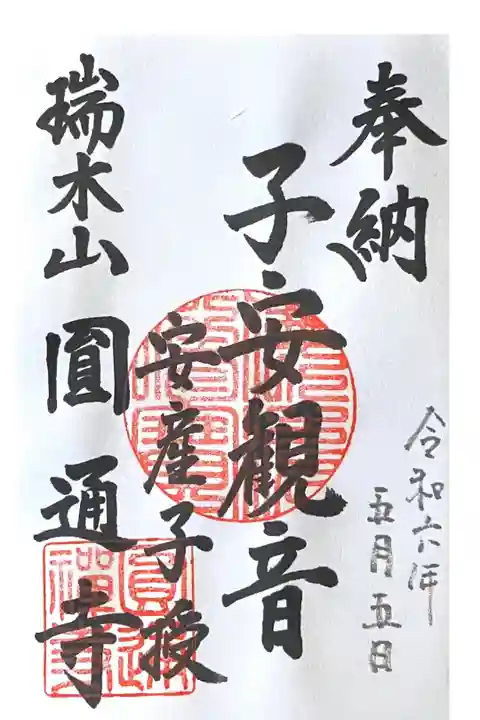 奉納
令和六年
五月五日
子安観音
安産子授
瑞木山圓通寺